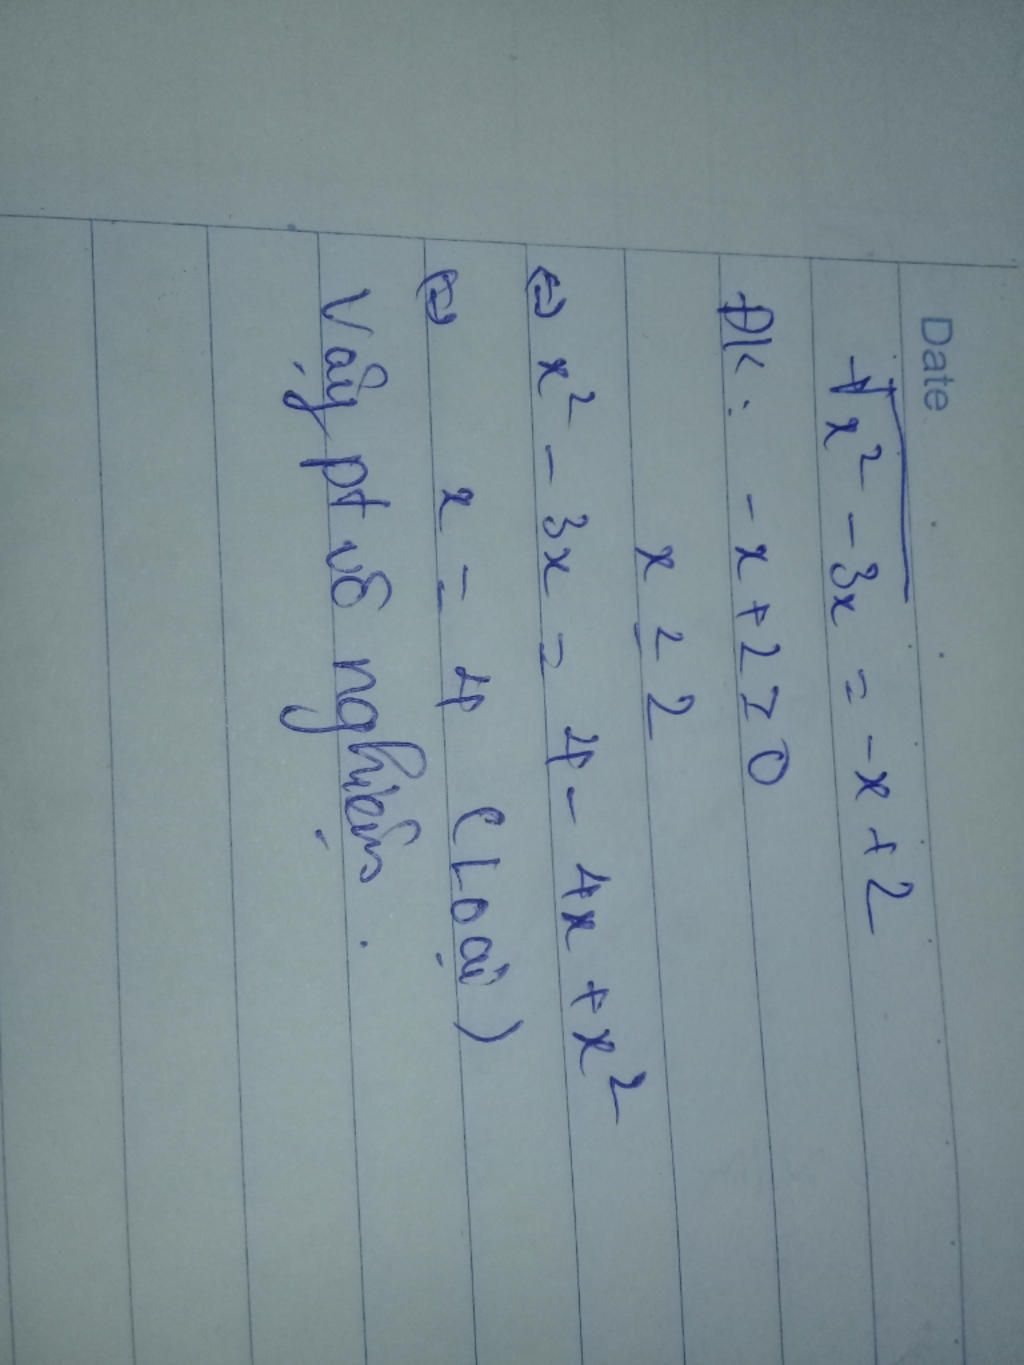 Date
√x² - 3x = -x + 2
ĐK: -x + 2 ≥ 0
x ≤ 2
⇔ x² - 3x = 4 - 4x + x²
⇔ x = 4 (Loại)
Vậy pt vô nghiệm.